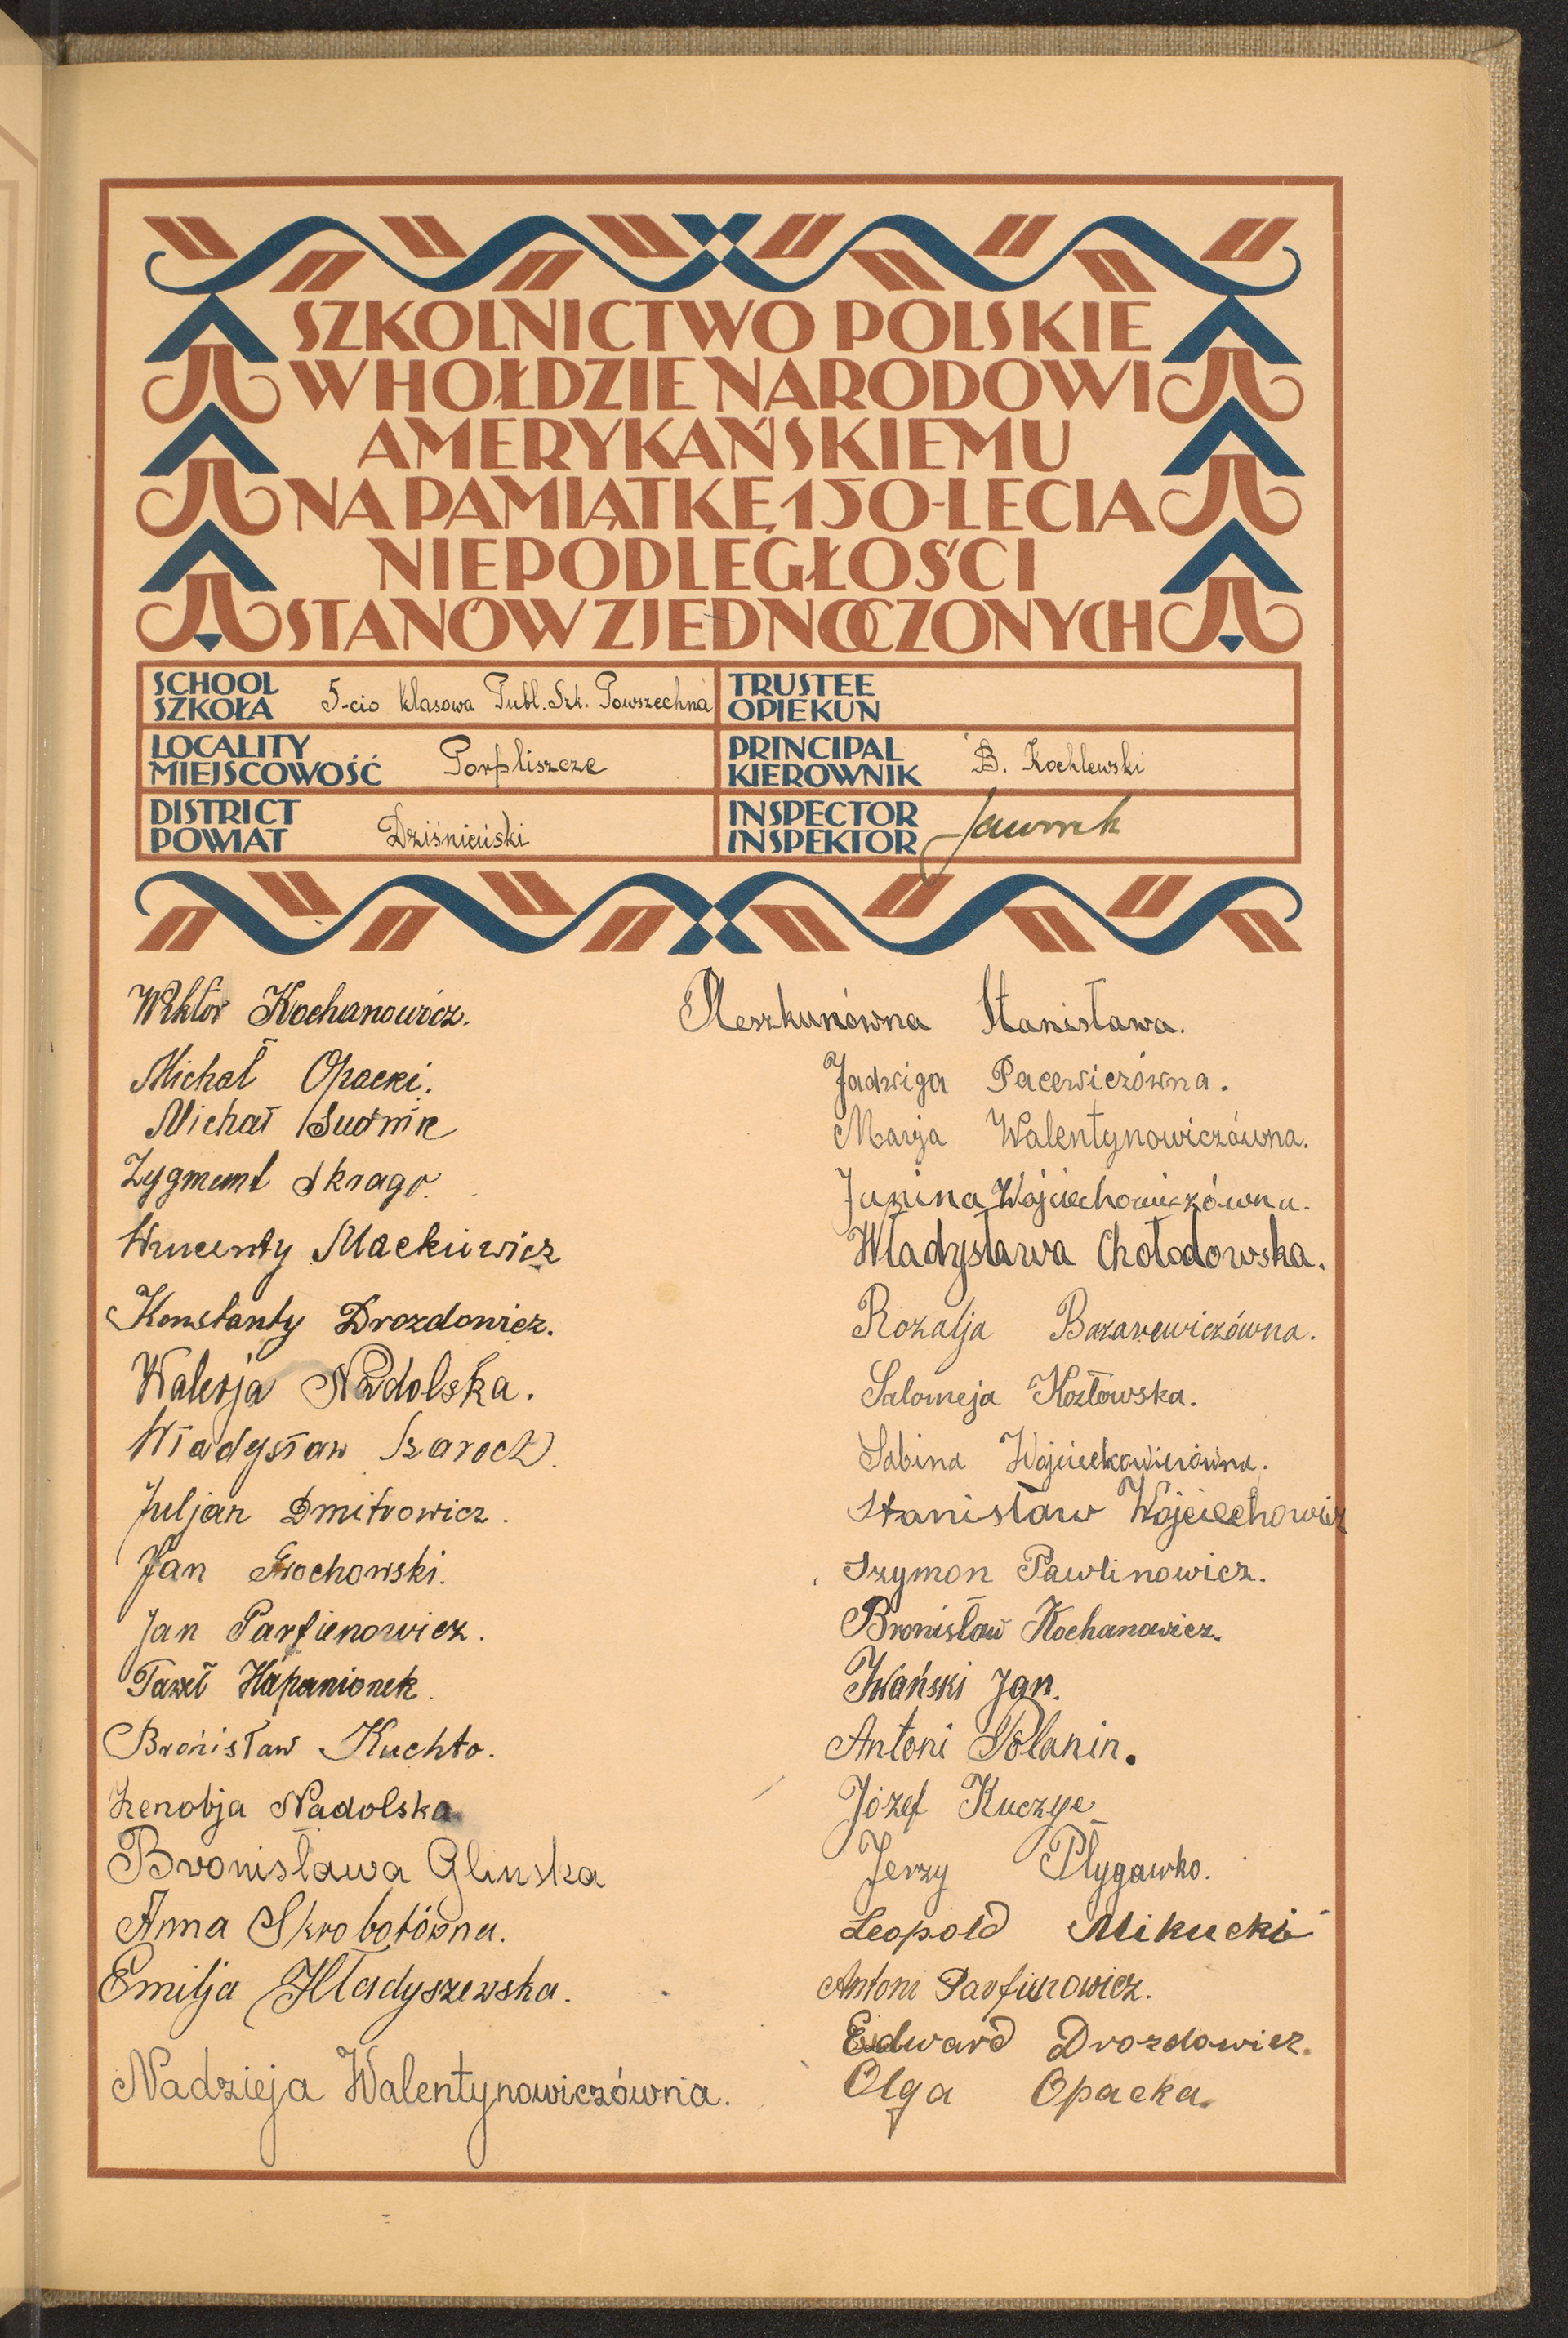 SZKOLNICTWO POLSKIE
W HOŁDZIE NARODOWI
AMERYKAŃSKIEMU
NA PAMIĄTKĘ 150-LECIA
NIEPODLEGŁOŚCI
STANÓW ZJEDNOCZONYCH
SCHOOL
SZKOŁA
5-cio klasowa Publ. Szk. Powszechna
TRUSTEE
OPIEKUN
LOCALITY
MIEJSCOWOŚĆ
Porpliszcze
PRINCIPAL
KIEROWNIK
B. Kochlewski
DISTRICT
POWIAT
Dziśnieński
INSPECTOR
INSPEKTOR
Wiktor Kochanowicz.
Michał Opacki.
Michał Sudnik
Zygmunt Skrago.
Wincenty Mackiewicz
Konstanty Drozdowicz.
Walerja Nadolska.
Władysław
Juljan Dmitrowicz.
Jan Grochowski.
Jan Parfienowicz.
Paweł Hapanionek.
Bronisław Kuchto.
Zenobja Nadolska
Bronisława Glinska
Anna Skrobotówna.
Emilja Hładyszewska.
Nadzieja Walentynowiczówna.
Pleszkunówna Stanisława.
Jadwiga Pacewiczówna.
Marja Walentynowiczówna.
Janina Wojciechowiczówna.
Władysława Chołodowska.
Rozalja Bazarewiczówna.
Salomeja Kozłowska.
Sabina
Stanisław Wojciechowicz
Szymon Pawlinowicz.
Bronisław Kochanowicz.
Iwański Jan.
Antoni Polanin.
Józef Kuczyc
Jerzy Pługawko.
Leopold Mikucki
Antoni Parfienowicz.
Edward Drozdowicz.
Olga Opacka.